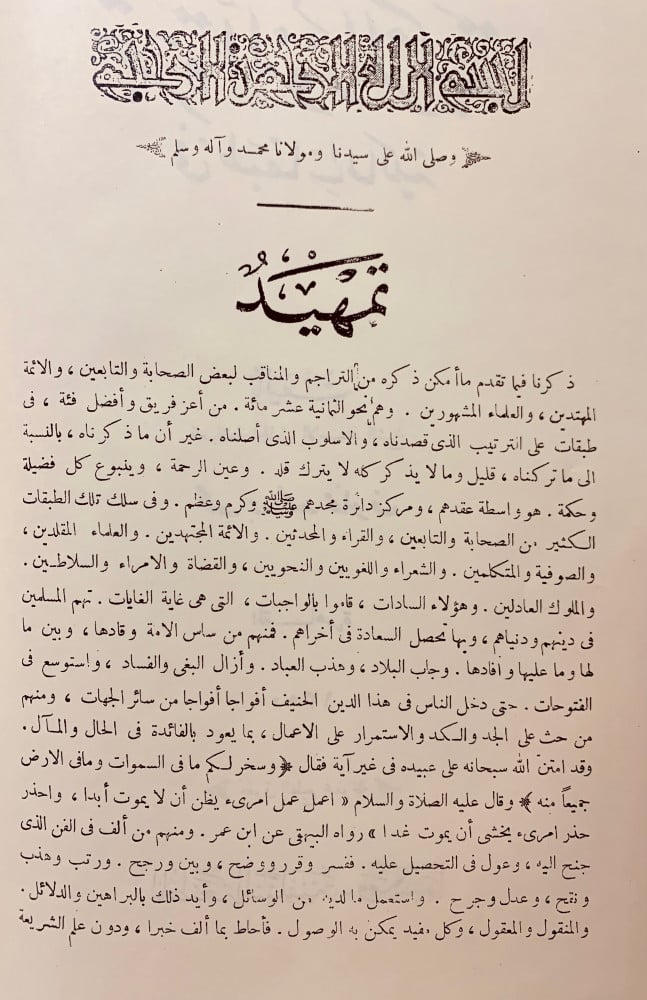 بسم الله الرحمن الرحيم
وصلى الله على سيدنا ومولانا محمد وآله وسلم
تمهيد
ذكرنا فيما تقدم ما أمكن ذكره من التراجم والمناقب لبعض الصحابة والتابعين ، والائمة
المهتدين ، والعلماء المشهورين . وهم نحو الثمانية عشر مائة . من أعز فريق وأفضل فئة ، فى
طبقات على الترتيب الذى قصدناه ، والاسلوب الذى أصلناه . غير أن ما ذكرناه ، بالنسبة
الى ما تركناه ، قليل وما لا يذكر كله لا يترك قله . وعين الرحمة ، وينبوع كل فضيلة
وحكمة . هو واسطة عقدهم ، ومركز دائرة مجدهم ﷺ وكرم وعظم . وفى سلك تلك الطبقات
الكثير من الصحابة والتابعين ، والقراء والمحدثين . والائمة المجتهدين . والعلماء المقلدين ،
والصوفية والمتكلمين . والشعراء واللغويين والنحويين ، والقضاة والامراء والسلاطين .
والملوك العادلين . وهؤلاء السادات ، قاموا بالواجبات ، التى هى غاية الغايات . تهم المسلمين
فى دينهم ودنياهم ، وبها تحصل السعادة فى أخراهم . فمنهم من ساس الامة وقادها ، وبين ما
لها وما عليها وأفادها . وجاب البلاد ، وهذب العباد . وأزال البغى والفساد ، واستوسع فى
الفتوحات . حتى دخل الناس فى هذا الدين الحنيف أفواجا أفواجا من سائر الجهات ، ومنهم
من حث على الجد والكد والاستمرار على الاعمال ، بما يعود بالفائدة فى الحال والمآل .
وقد امتن الله سبحانه على عبيده فى غير آية فقال ﴿ وسخر لكم ما فى السموات وما فى الارض
جميعاً منه ﴾ وقال عليه الصلاة والسلام « اعمل عمل امرىء يظن أن لا يموت أبدا ، واحذر
حذر امرىء يخشى أن يموت غدا » رواه البيهقى عن ابن عمر . ومنهم من ألف فى الفن الذى
جنح اليه ، وعول فى التحصيل عليه . ففسر وقرر ووضح ، وبين ورجح . ورتب وهذب
ونقح ، وعدل وجرح . واستعمل ما لديه من الوسائل ، وأيد ذلك بالبراهين والدلائل .
والمنقول والمعقول ، وكل مفيد يمكن به الوصول . فأحاط بما ألف خبرا ، ودون علم الشريعة